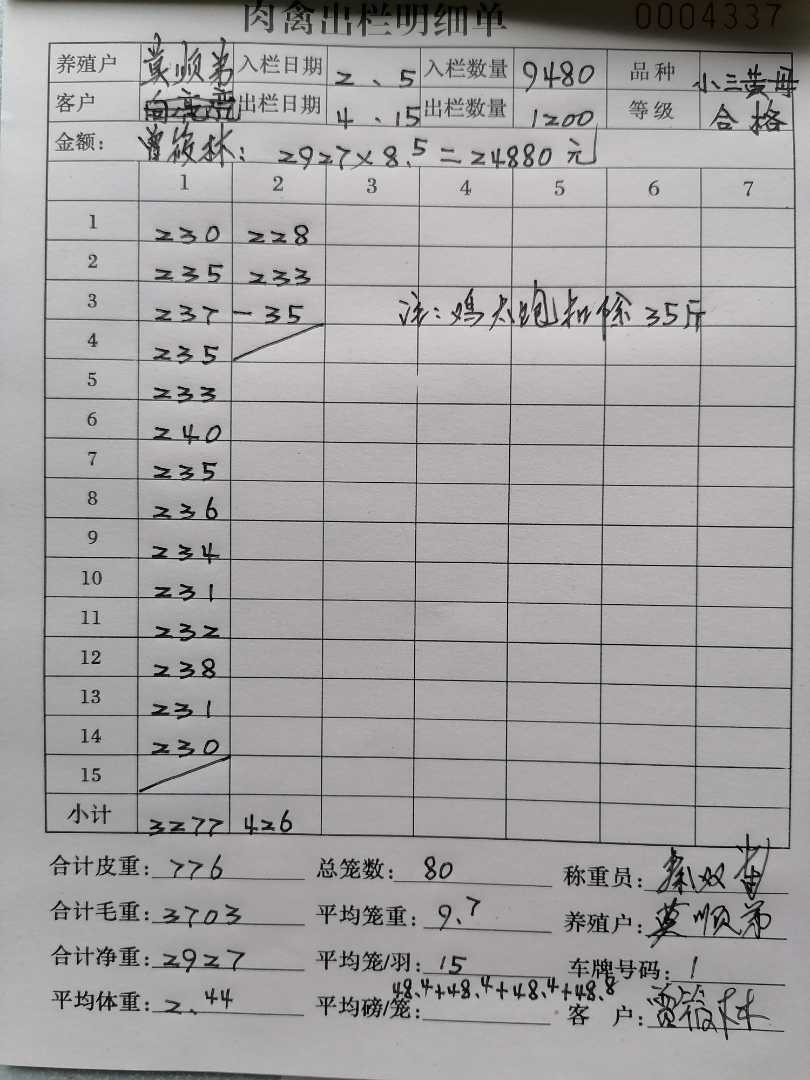 肉禽出栏明细单 0004337
养殖户 莫顺弟 入栏日期 2、5 入栏数量 9480 品种 小三黄母
客户 出栏日期 4.15 出栏数量 1200 等级 合格
金额: 曾筱林: 2927×8.5=24880元
1 2 3 4 5 6 7
1 230 228
2 235 233
3 237 -35 注:鸡太饱扣除35斤
4 235
5 233
6 240
7 235
8 236
9 234
10 231
11 232
12 238
13 231
14 230
15
小计 3277 426
合计皮重: 776 总笼数: 80 称重员: 秦双
合计毛重: 3703 平均笼重: 9.7 养殖户: 莫顺弟
合计净重: 2927 平均笼/羽: 15 车牌号码: 1
平均体重: 2.44 平均磅/笼: 48.4+48.4+48.4+48.8 客户: 筱林